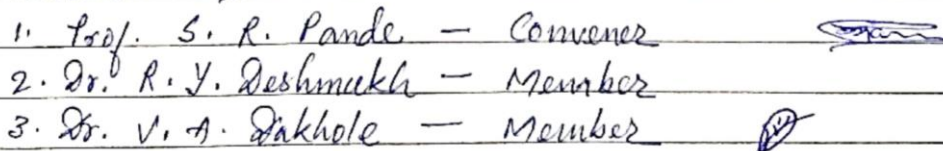 1. Prof. S. R. Pande — Convener
2. Dr. R. Y. Deshmukh — Member
3. Dr. V. A. Dakhole — Member